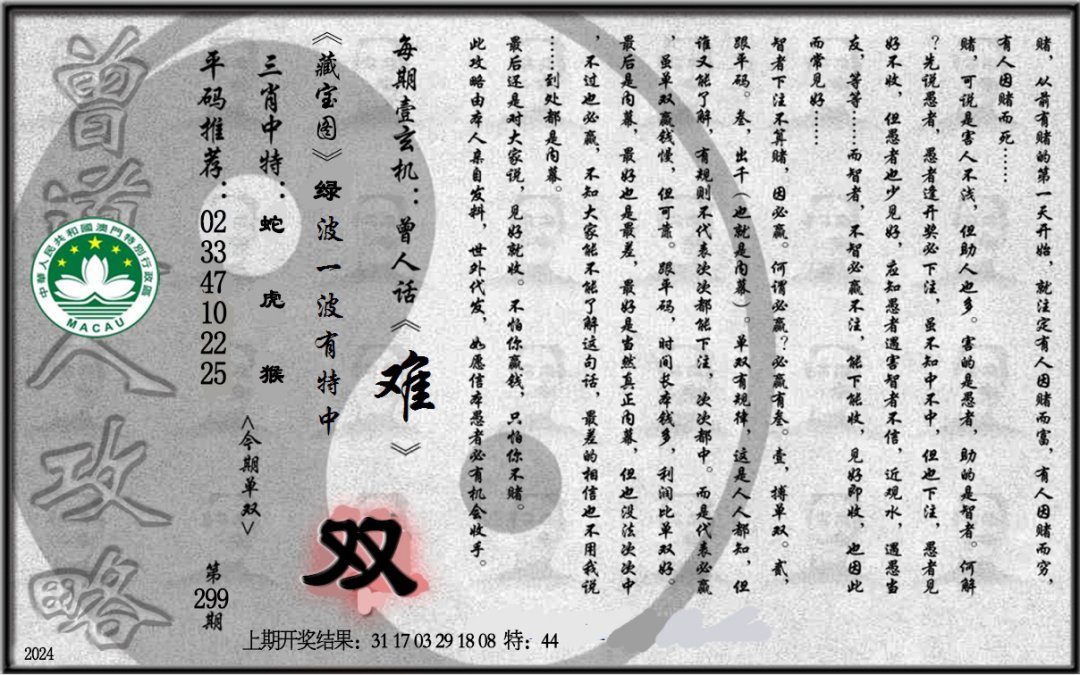 赌，从前有赌的第一天开始，就注定有人因赌而富，有人因赌而穷，
有人因赌而死……
赌，可说是害人不浅，但助人也多。害的是愚者，助的是智者。何解
？先说愚者，愚者逢开奖必下注，虽不知中不中，但也下注，愚者见
好不收，但愚者也少见好，应知愚者遇害智者不信，近观水，遇愚当
友，等等……而智者，不智必赢不注，能下能收，见好即收，也因此
而常见好……
智者下注不算赌，因必赢。何谓必赢？必赢有叁。壹，搏单双。贰，
跟平码。叁，出千（也就是内幕）。单双有规律，这是人人都知，但
谁又能了解，有规则不代表次次都能下注，次次都中。而是代表必赢
，虽单双赢钱慢，但可靠。跟平码，时间长本钱多，利润比单双好。
最后是内幕，最好也是最差，最好是当然真正内幕，但也没法次次中
，不过也必赢，不知大家能不能了解这句话，最差的相信也不用我说
……到处都是内幕。
最后还是对大家说，见好就收。不怕你赢钱，只怕你不赌。
此攻略由本人亲自发料，世外代发，如愿信本愚者必有机会收手。
每期壹玄机：曾人话《难》
《藏宝图》绿波一波有特中
三肖中特：蛇 虎 猴
平码推荐：02 33 47 10 22 25
<今期单双>
双
第299期
曾道人攻略
中華人民共和國澳門特別行政區
MACAU
上期开奖结果：31 17 03 29 18 08 特：44
2024